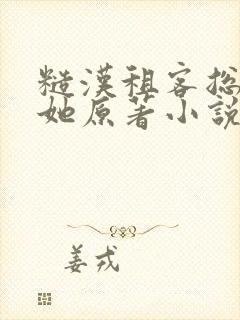 糙漢租客總
她原著小說
姜戎